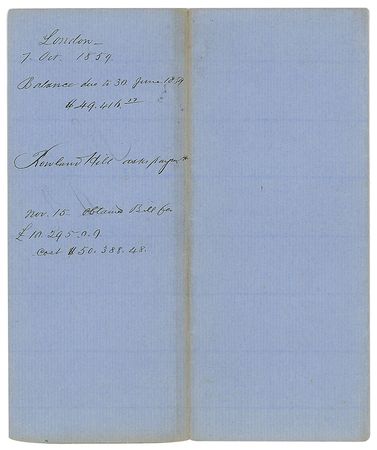 London
7 Oct. 1859
Balance due to 30 June 1859
$49.416
Rowland Hill asks paymt
Nov. 15 obtained Bill for
£10.295.0.9
Cost $50.388.48.